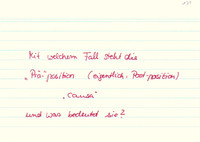 Mit welchem Fall steht die
"Prä"position (eigentlich Post-position)
"causā"
und was bedeutet sie?